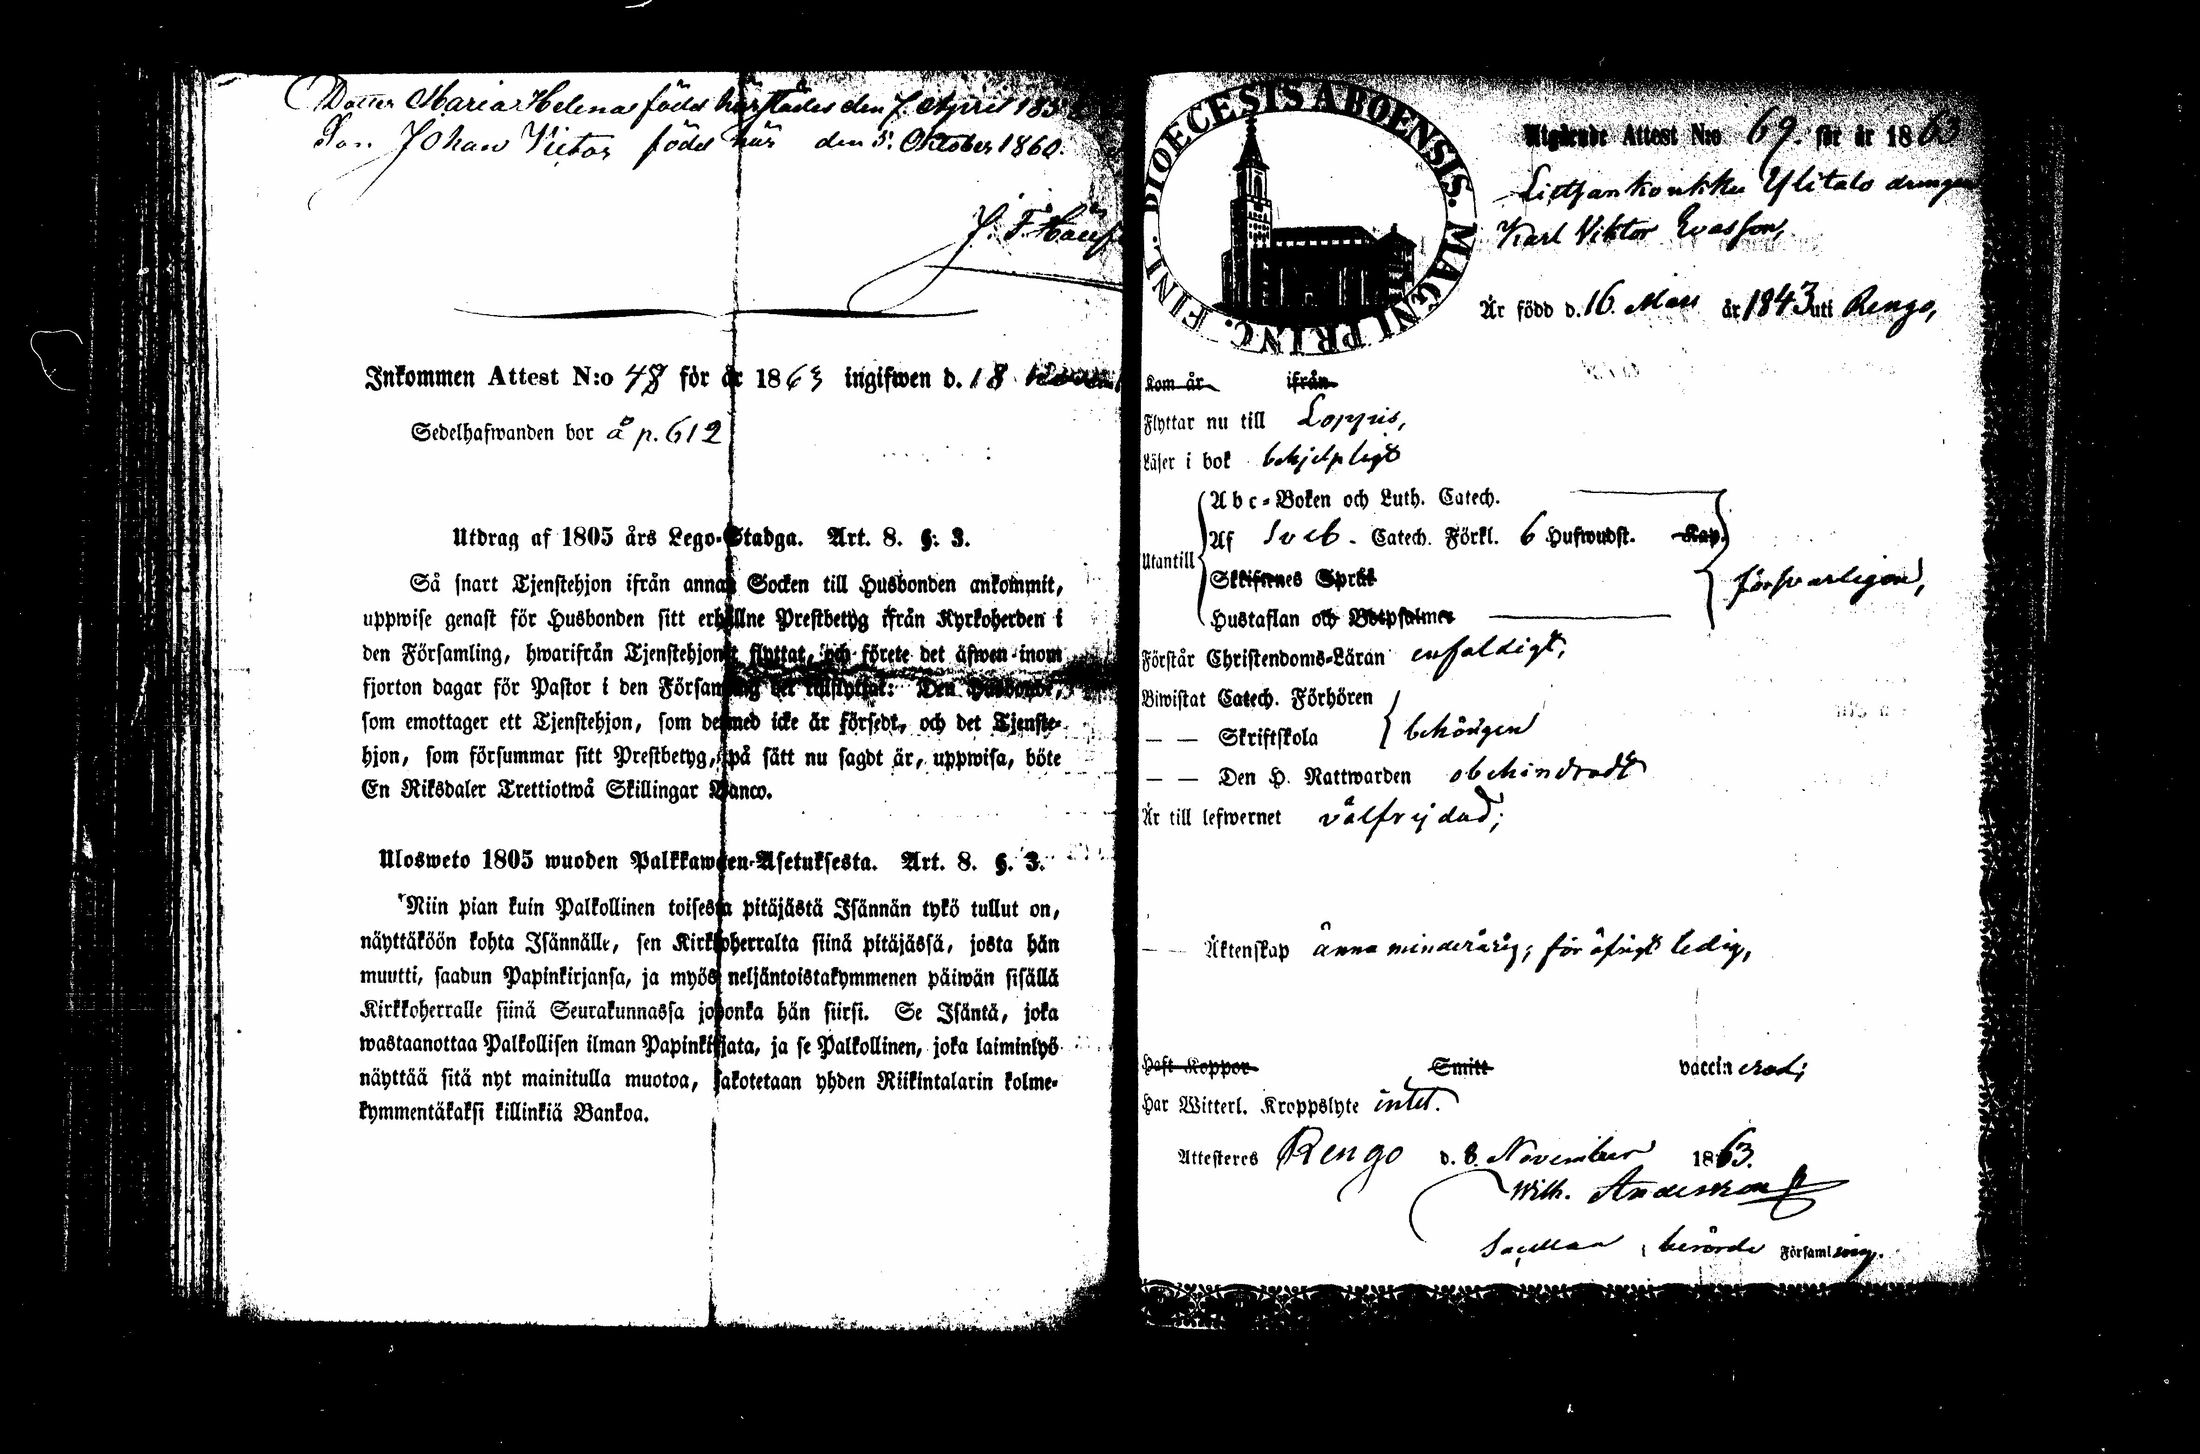 Dotter Maria Helena född härstädes den 7. April 185
Son Johan Victor född här den 5. Oktober 1860.
Inkommen Attest N:o 48 för år 1863 ingifwen d. 18
Sedelhafwanden bor å p. 612
Utdrag af 1805 års Lego-Stadga. Art. 8. §. 3.
Så snart Tjenstehjon ifrån annan Socken till Husbonden ankommit,
uppwise genast för Husbonden sitt erhållne Prestbetyg ifrån Kyrkoherden i
den Församling, hwarifrån Tjenstehjonet flyttat, och förete det äfwen inom
fjorton dagar för Pastor i den Församling det tillflyttat: Den Husbonde,
som emottager ett Tjenstehjon, som dermed icke är försedt, och det Tjenste-
hjon, som försummar sitt Prestbetyg, på sätt nu sagdt är, uppwisa, böte
En Riksdaler Trettiotwå Skillingar Banco.
Ulosweto 1805 wuoden Palkkawäen-Asetuksesta. Art. 8. §. 3.
Niin pian kuin Palkollinen toisesta pitäjästä Isännän tykö tullut on,
näyttäköön kohta Isännälle, sen Kirkkoherralta siinä pitäjässä, josta hän
muutti, saadun Papinkirjansa, ja myös neljäntoistakymmenen päiwän sisällä
Kirkkoherralle siinä Seurakunnassa johonka hän siirsi. Se Isäntä, joka
wastaanottaa Palkollisen ilman Papinkirjata, ja se Palkollinen, joka laiminlyö
näyttää sitä nyt mainitulla muotoa, sakotetaan yhden Riikintalarin kolme-
kymmentäkaksi killinkiä Bankoa.
DIOECESIS ABOENSIS. MAGNI PRINC. FINL.
Utgående Attest N:o 69. för år 1863
Ylitalo drengen
Karl Viktor Evasson,
Är född d. 16. Mars år 1843 uti Rengo,
Kom år ifrån
Flyttar nu till Loppis,
Läser i bok behjelpligt
Abc-Boken och Luth. Catech.
Utantill Af Sveb. Catech. Förkl. 6 Hufwudst. Kap.
Skriftenes Språk försvarligen,
Hustaflan och Botpsalmer
Förstår Christendoms-Läran enfaldigt,
Biwistat Catech. Förhören
— — Skriftskola behörigen
— — Den H. Nattwarden obehindradt
Är till lefwernet välfrejdad;
— — Äktenskap ännu minderårig; för öfrigt ledig,
Haft Koppor Smitt vaccinerad;
Har Witterl. Kroppslyte intet.
Attesteres Rengo d. 8. November 1863.
Wilh. Andersson
Sacellan i berörde Församling.